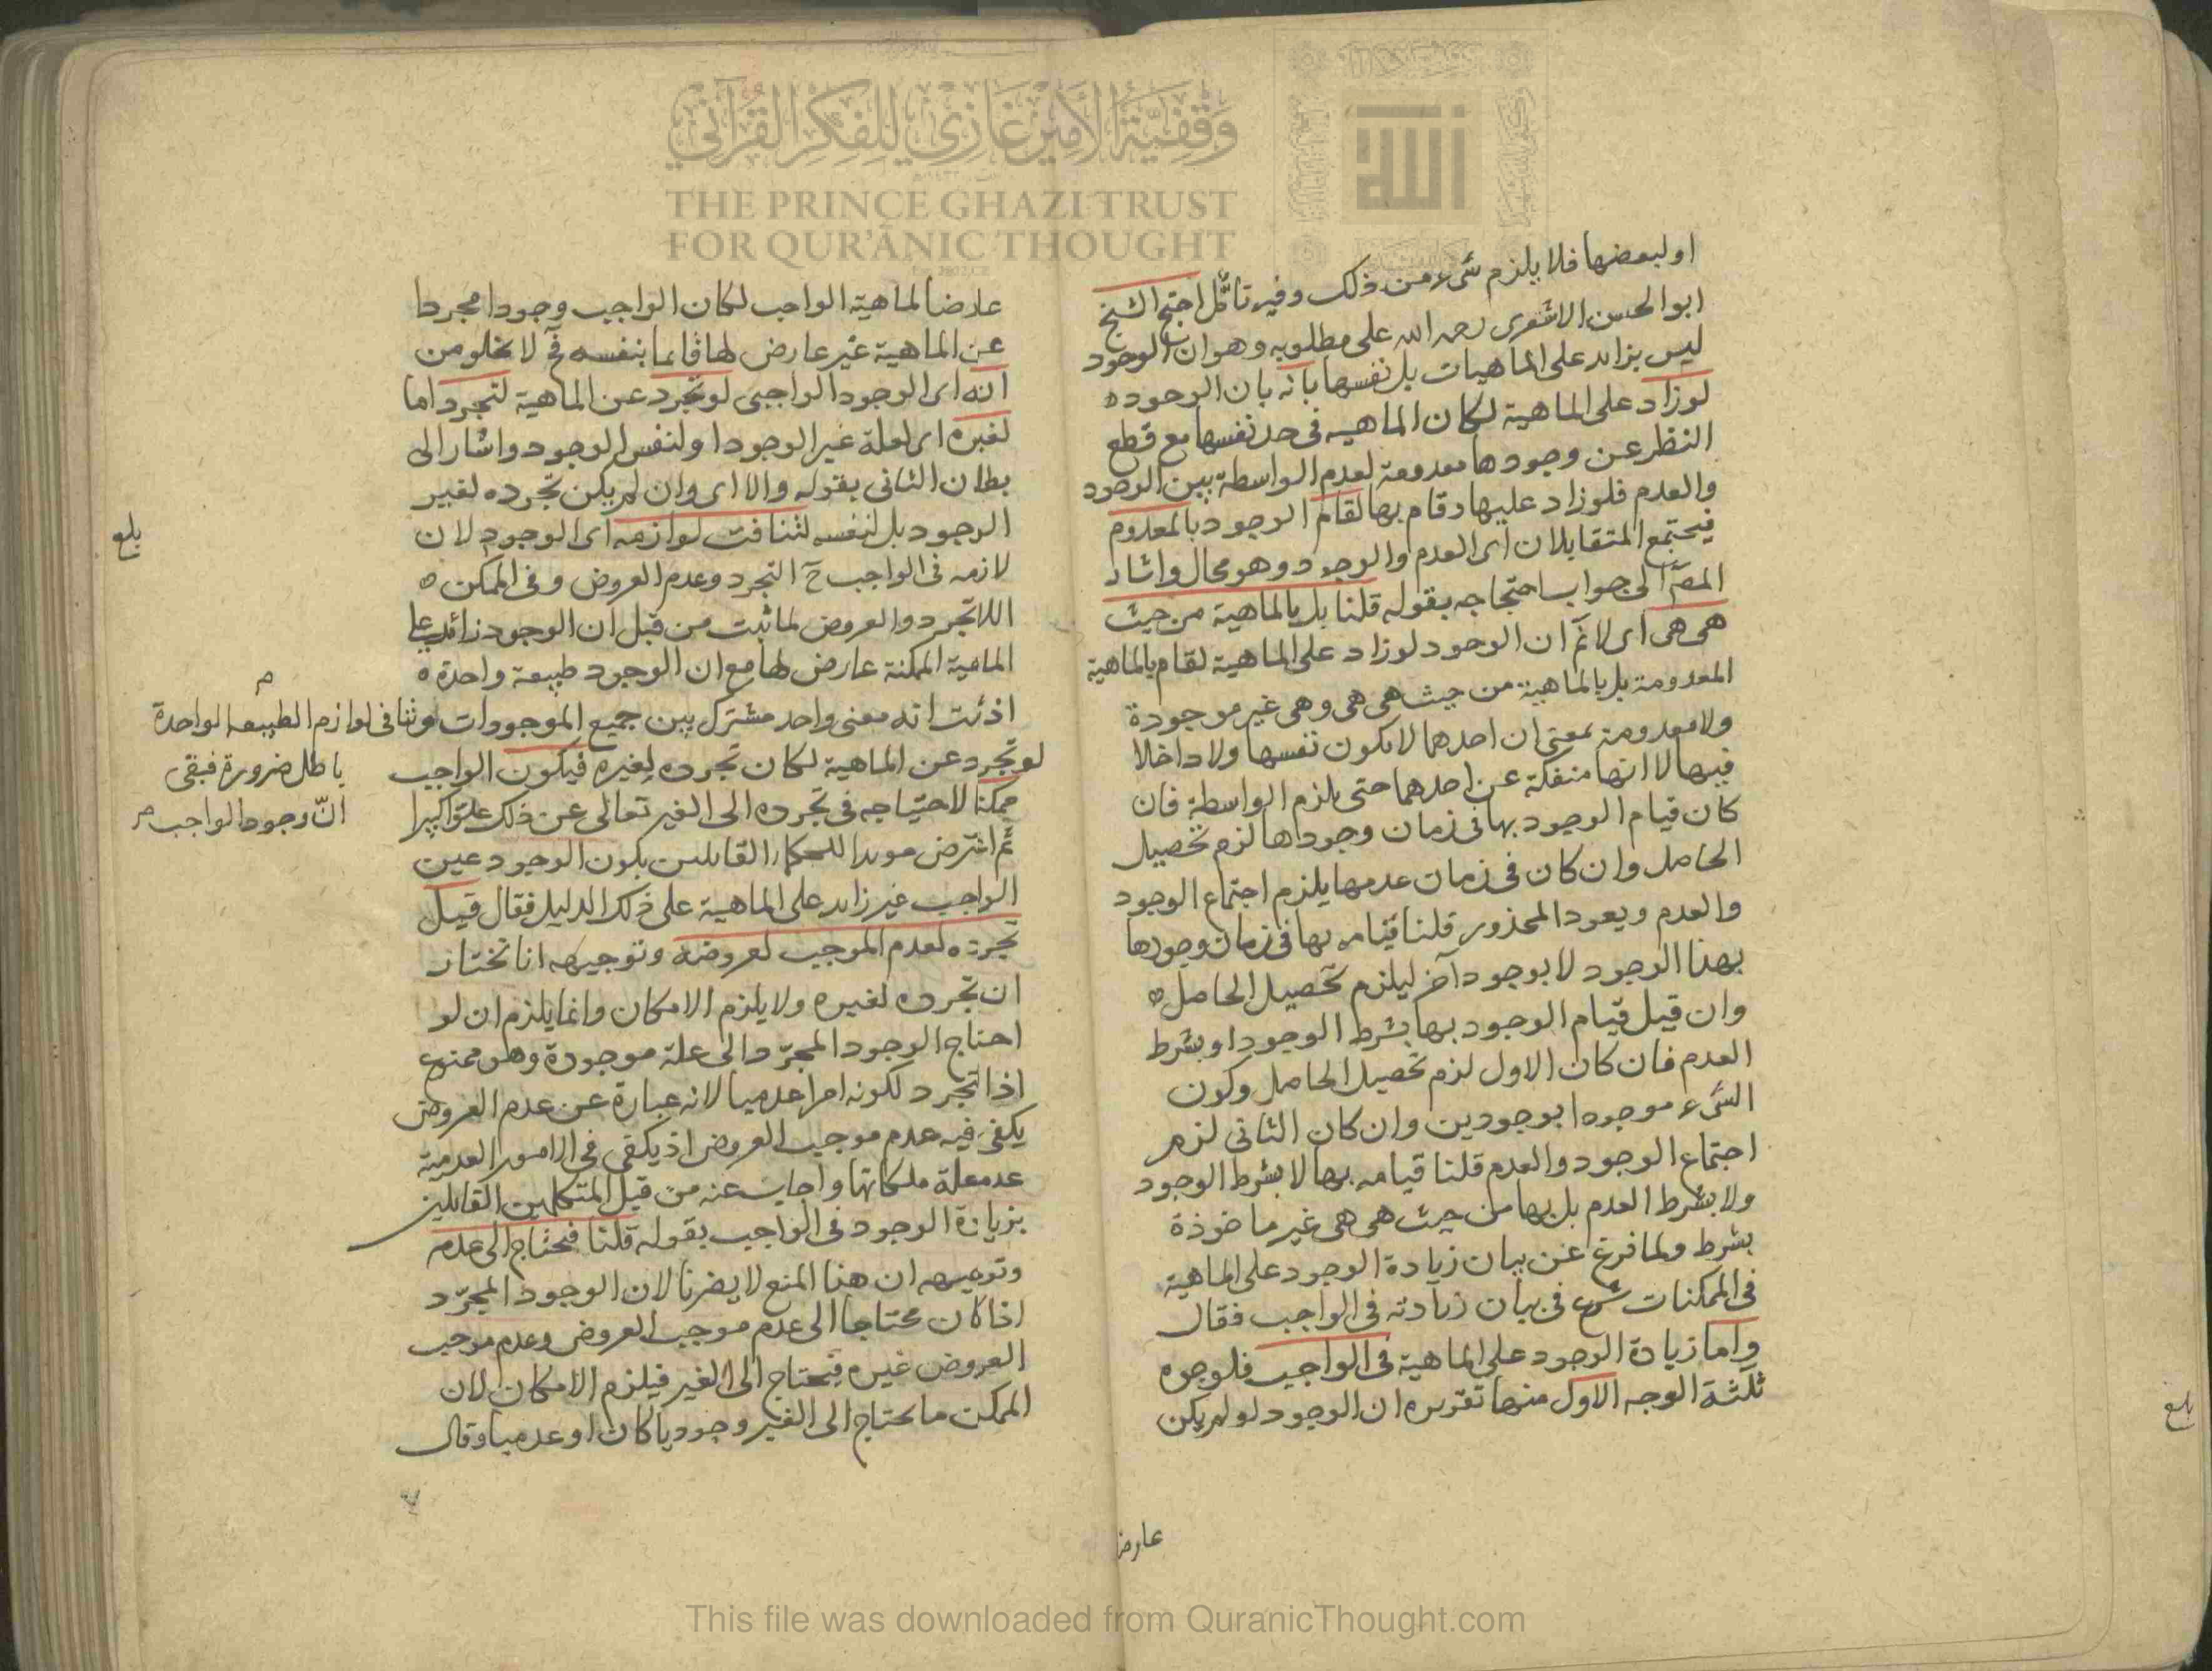 وقفية الأمير غازي للفكر القرآني
THE PRINCE GHAZI TRUST
FOR QUR'ĀNIC THOUGHT
الله
او لبعضها فلا يلزم شىء من ذلك وفيه تأمّل احتج الشيخ
ابو الحسن الاشعرى رحمه الله على مطلوبه وهو ان الوجود
ليس بزايد على الماهيات بل نفسها بانه بان الوجود
لو زاد على الماهية لكان الماهيه فى حد نفسها مع قطع
النظر عن وجودها معدومة لعدم الواسطة بين الوجود
والعدم فلو زاد عليها وقام بها لقام الوجود بالمعدوم
فيجتمع المتقابلان اى العدم والوجود وهو محال واشار
المصّ الى جواب احتجاجه بقوله قلنا بل بالماهية من حيث
هى هى اى لا نم ان الوجود لو زاد على الماهية لقام بالماهية
المعدومة بل بالماهية من حيث هى هى وهى غير موجودة
ولا معدومة بمعنى ان احدهما لا يكون نفسها ولا داخلا
فيها لا انها منفكة عن احدهما حتى يلزم الواسطة فان
كان قيام الوجود بها فى زمان وجودها لزم تحصيل
الحاصل وان كان فى زمان عدمها يلزم اجتماع الوجود
والعدم ويعود المحذور قلنا قيامه بها فى زمان وجودها
بهذا الوجود لا بوجود آخر ليلزم تحصيل الحاصل
وان قيل قيام الوجود بها بشرط الوجود او بشرط
العدم فان كان الاول لزم تحصيل الحاصل وكون
الشىء موجودا بوجودين وان كان الثانى لزم
اجتماع الوجود والعدم قلنا قيامه بها لا بشرط الوجود
ولا بشرط العدم بل بها من حيث هى هى غير ماخوذة
بشرط ولما فرغ عن بيان زيادة الوجود على الماهية
فى الممكنات شرع فى بيان زيادته فى الواجب فقال
واما زيادة الوجود على الماهية فى الواجب فلوجوه
ثلثة الوجه الاول منها تقريره ان الوجود لو لم يكن
عارضا
بلغ
عارضا لماهية الواجب لكان الواجب وجودا مجردا
عن الماهية غير عارض لها قايما بنفسه فح لا يخلو من
انه اى الوجود الواجبى لو تجرد عن الماهية لتجرد اما
لغيره اى لعلة غير الوجود او لنفس الوجود واشار الى
بطلان الثانى بقوله والا اى وان لم يكن تجرده لغير
الوجود بل لنفسه لتنافت لوازمه اى الوجود لان
لازمه فى الواجب ح التجرد وعدم العروض وفى الممكن
اللاتجرد والعروض لما ثبت من قبل ان الوجود زائد على
الماهية الممكنة عارض لها مع ان الوجود طبيعة واحدة
اذ ثبت انه معنى واحد مشترك بين جميع الموجودات وتنافى لوازم الطبيعه الواحدة
باطل ضرورة فبقى
انّ وجود الواجب
لو تجرد عن الماهية لكان تجرده لغيره فيكون الواجب
ممكنا لاحتياجه فى تجرده الى الغير تعالى عن ذلك علوا كبيرا
ثم اعترض مويدا للحكماء القايلين بكون الوجود عين
الواجب غير زايد على الماهية على ذلك الدليل فقال قيل
تجرده لعدم الموجب لعروضه وتوجيهه انا نختار
ان تجرده لغيره ولا يلزم الامكان وانما يلزم ان لو
احتاج الوجود المجرّد الى علة موجودة وهو ممنوع
اذ التجرد لكونه امرا عدميا لانه عبارة عن عدم العروض
يكفى فيه عدم موجب العروض اذ يكفى فى الامور العدمية
عدم علة ملكاتها واجاب عنه من قبل المتكلمين القايلين
بزيادة الوجود فى الواجب بقوله قلنا فيحتاج الى عدم
وتوجيهه ان هذا المنع لا يضرنا لان الوجود المجرّد
اذا كان محتاجا الى عدم موجب العروض وعدم موجب
العروض غيره فيحتاج الى الغير فيلزم الامكان لان
الممكن ما يحتاج الى الغير وجوديا كان او عدميا وقال
بلغ
This file was downloaded from QuranicThought.com